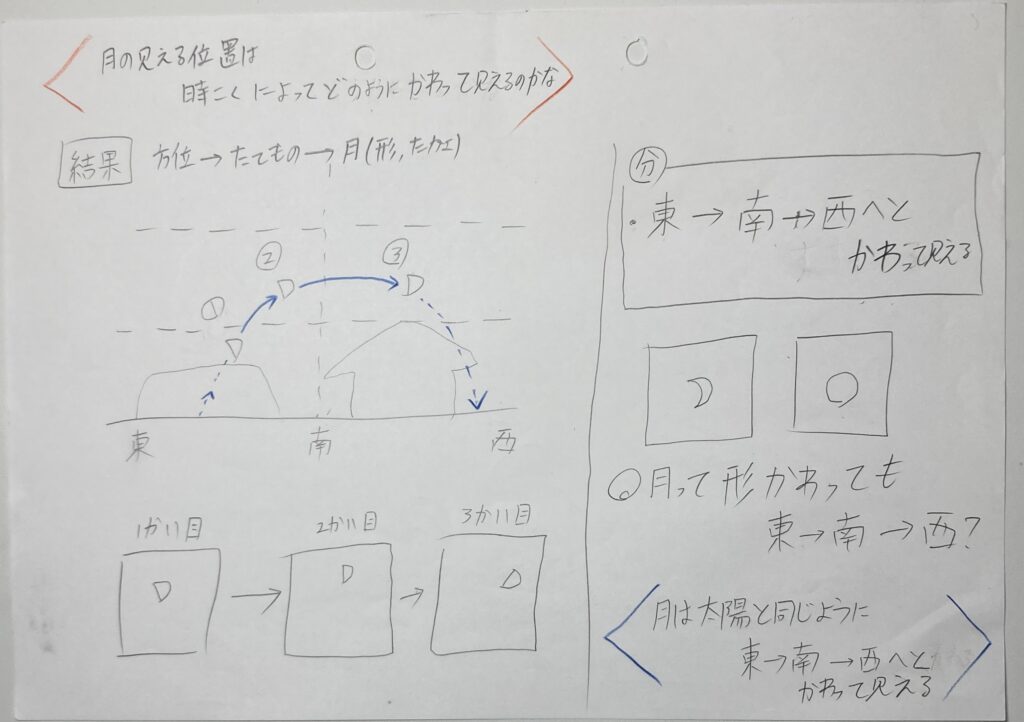 月の見える位置は
時こくによってどのようにかわって見えるのかな
結果 方位→たてもの→月(形,たかさ)
① ② ③
東 南 西
1かい目 2かい目 3かい目
分
・東→南→西へと
かわって見える
月って形かわっても
東→南→西?
月は太陽と同じように
東→南→西へと
かわって見える